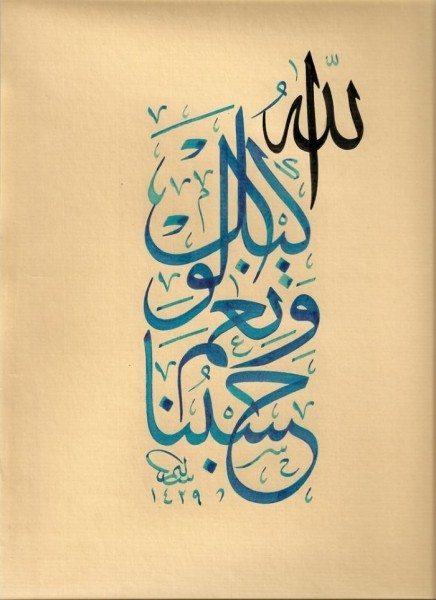 حَسْبُنَا اللّٰهُ وَنِعْمَ الْوَكِيلُ
١٤٢٩